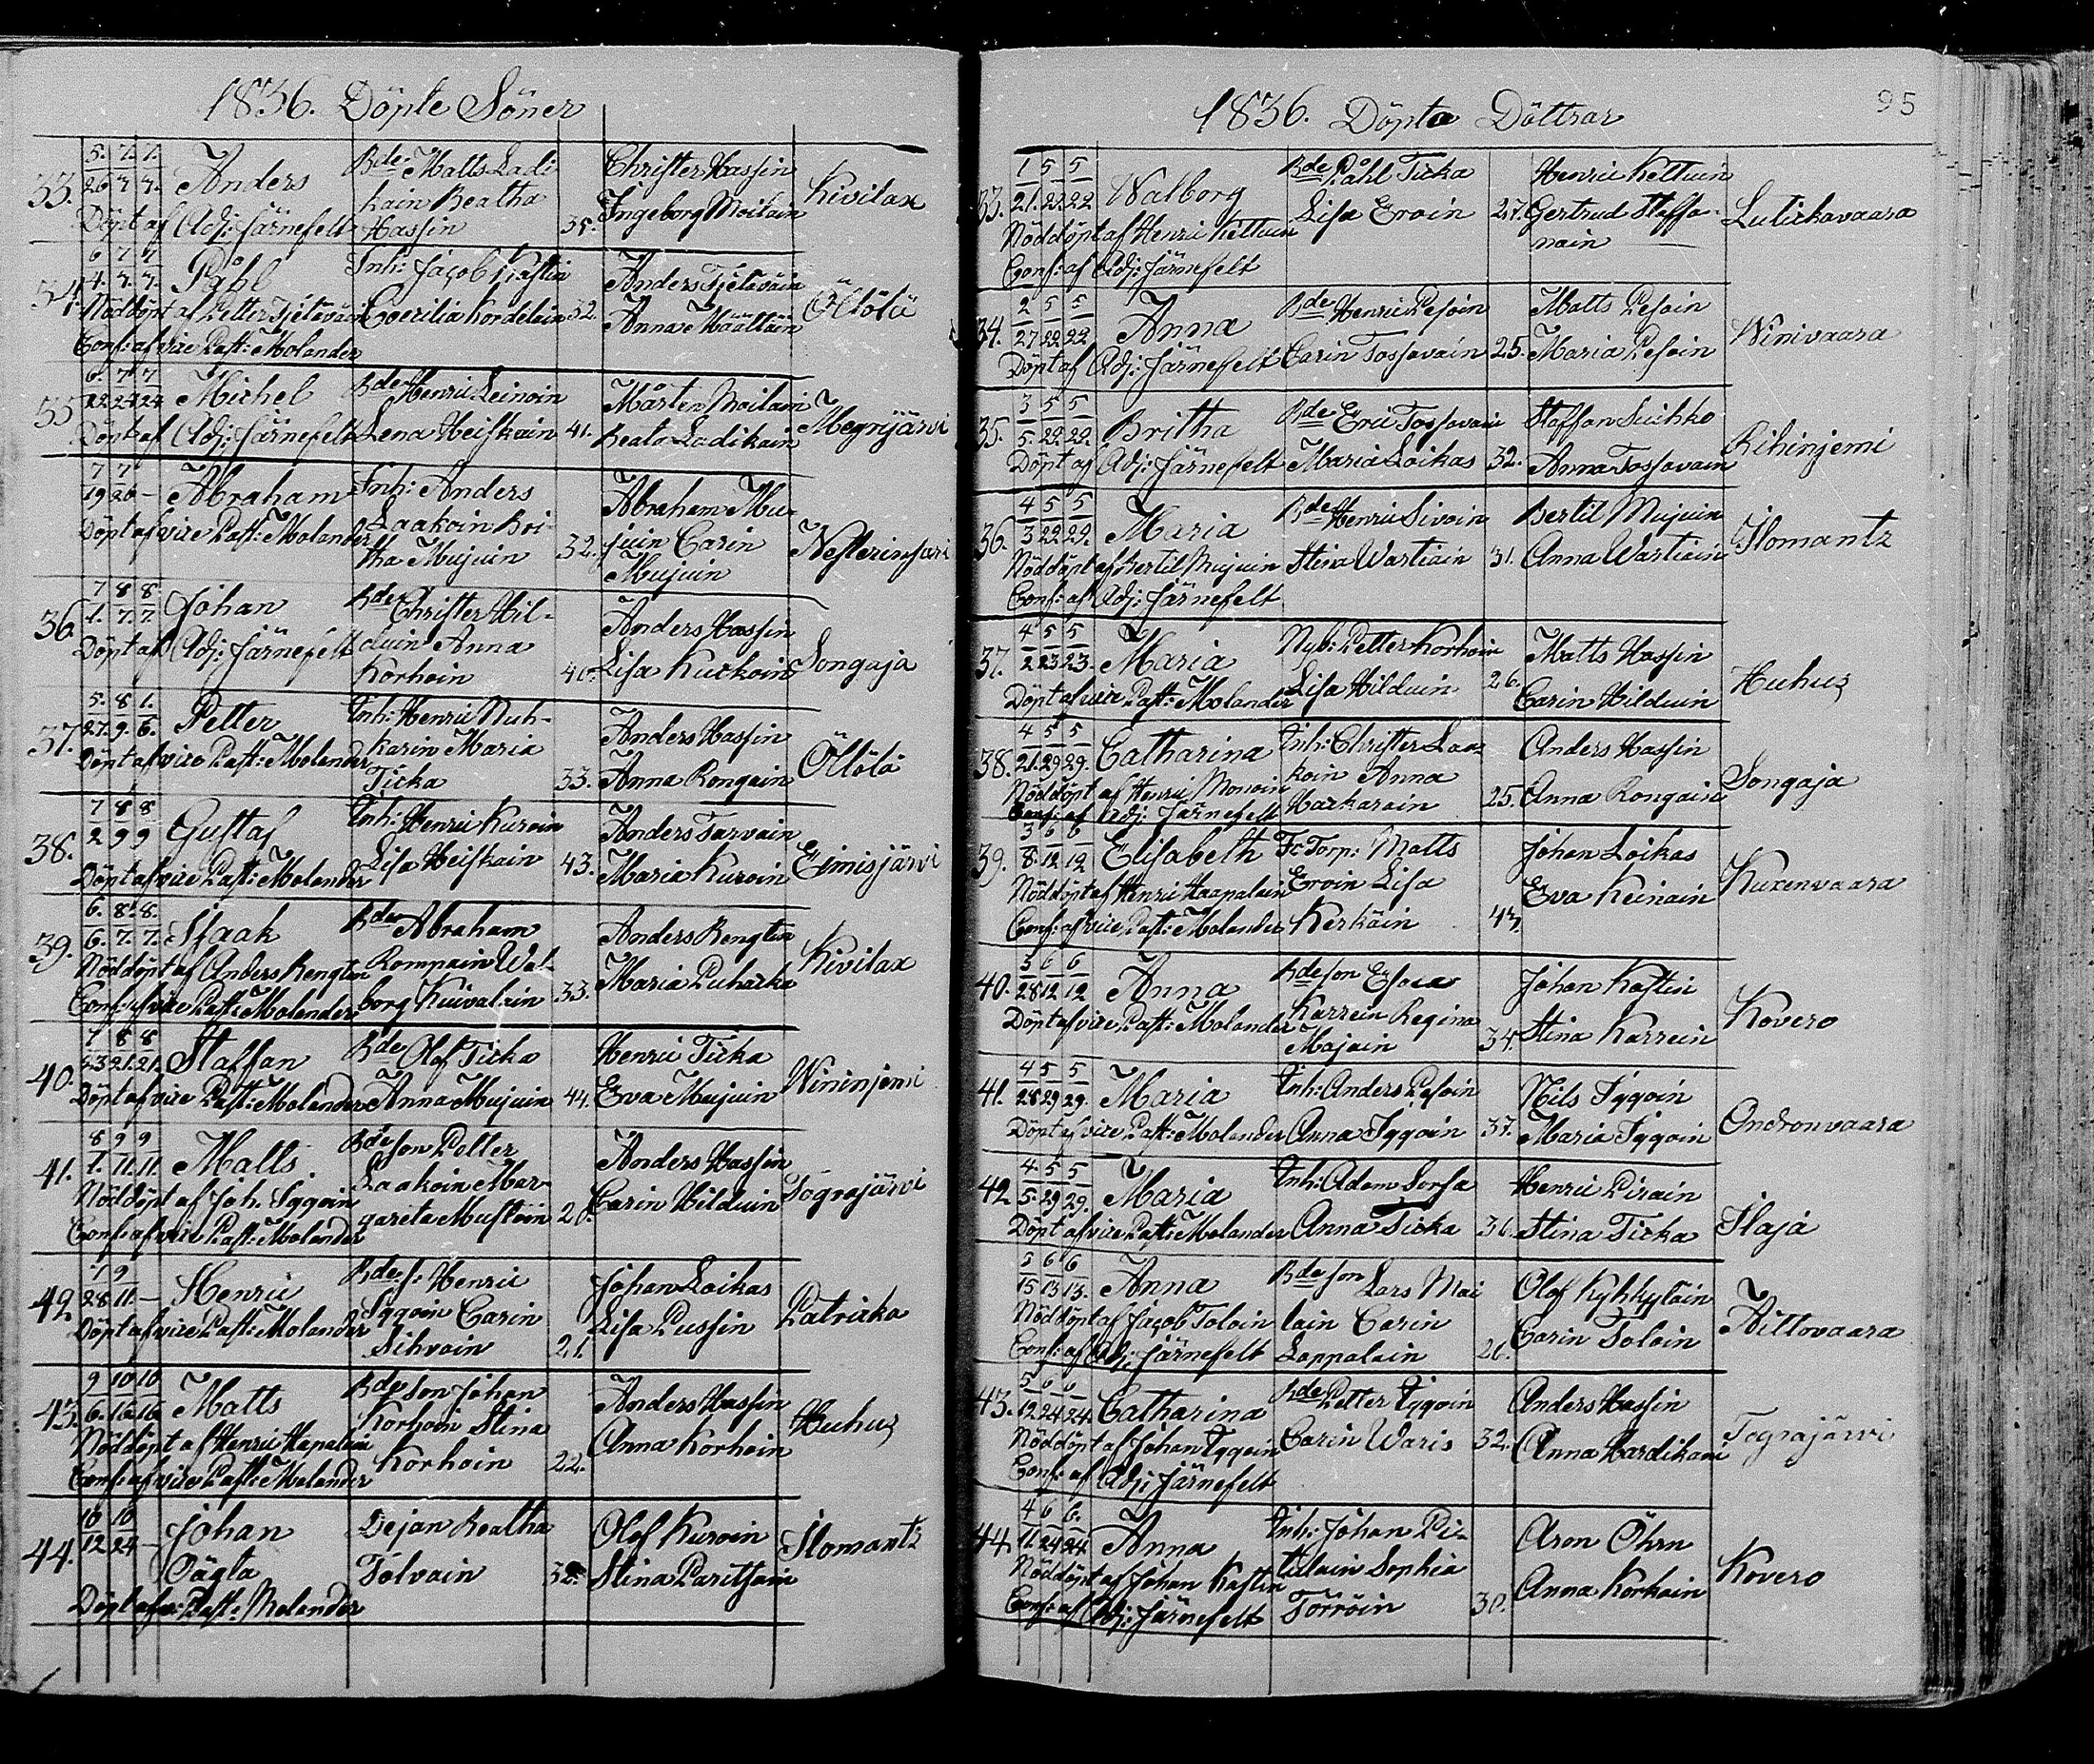 1836. Döpte Söner
33. 5. 7. 7. Anders Bde Matts Ladi Christer Hassin Kivilax
26 7 7. kain Beatha
Döpt af Adj: Järnefelt Hassin 35. Ingeborg Moilain
34. 6 7 7 Påhl Inh: Jacob Kastin Anders Tjetäväin Öllölä
4. 7. 7.
Nöddöpt af Petter Tjetäväin Coecilia Kordelain 32. Anna Määttäin
Conf: af vice Past: Molander
35 6. 7 7 Michel Bde Henric Leinoin Mårten Moilain Megrijärvi
22 24 24
Döpt af Adj: Järnefelt Lena Heiskain 41. Beata Ladikain
7 7 Abraham Inh: Anders Abraham Mu-
19 20 – Laakoin Bri-
Döpt af vice Past: Molander tha Mujuin 32. juin Carin Nesterinsari
Mujuin
36. 7 8 8. Johan Bde Christer Hil- Anders Hassin Songaja
1. 7. 7. duin Anna
Döpt af Adj: Järnefelt Korhoin 40. Lisa Kuckoin
37. 5. 8 1. Petter Inh: Henric Nuh- Anders Hassin Öllölä
27. 9. 6. karin Maria
Döpt af vice Past: Molander Ticka 33. Anna Rongain
38. 7 8 8 Gustaf Inh: Henric Kuroin Anders Tarvain Eimisjärvi
2 9 9 Lisa Heiskain 43. Maria Kuroin
Döpt af vice Past: Molander
39. 6. 8. 8. Isaak Bde Abraham Anders Bengten Kivilax
6. 7. 7. Rompain Wal-
Nöddöpt af Anders Bengten borg Kuivalain 33. Maria Puhacka
Conf: af vice Past: Molander
40. 7 8 8 Staffan Bde Olof Ticka Henric Ticka Wininjemi
23 21. 21.
Döpt af vice Past: Molander Anna Mujuin 44. Eva Mujuin
41. 8 9 9 Matts Bde son Petter Anders Hassin Tograjärvi
1. 11. 11. Laakoin Mar-
Nöddöpt af Joh. Iggoin gareta Mustoin 28. Carin Hilduin
Conf: af vice Past: Molander
42 7 9 Henric Bde: s: Henric Johan Loikas Patricka
28 11. – Iggoin Carin Lisa Pussin
Döpt af vice Past: Molander Sihvoin 21.
43. 9 10 10 Matts Bde son Johan Anders Hassin Huhus
6. 16 16 Korhoin Stina
Nöddöpt af Henric Hapalain Korhoin 22. Anna Korhoin
Conf: af vice Past: Molander
44. 10 10 Johan Dejan Beatha Olof Kuroin Ilomantz
12 24 – Oägta Tolvain 32. Stina Paritsain
Döpt af v. Past: Molander
1836. Döpta Döttrar 95
33. 1 5 5 Walborg Bde Påhl Ticka Henric Kettuin Lutickavaara
21. 22. 22 Lisa Eroin 27. Gertrud Staffa-
Nöddöpt af Henric Kettuin nain
Conf: af Adj: Järnefelt
34. 2 5 5 Anna Bde Henric Pesoin Matts Pesoin Winivaara
27 22 22
Döpt af Adj: Järnefelt Carin Tossavain 25. Maria Pesoin
35. 3 5 5 Britha Bde Eric Tossavain Staffan Suihko Rihinjemi
5. 22. 22.
Döpt af Adj: Järnefelt Maria Loikas 32. Anna Tossavain
36. 4 5 5 Maria Bde Henric Sivoin Bertil Mujuin Ilomantz
3 22 22.
Nöddöpt af Bertil Mujuin Stina Wartiain 31. Anna Wartiain
Conf: af Adj: Järnefelt
37. 4 5 5 Maria Nyb: Petter Korhoin Matts Hassin Huhus
2 23 23.
Döpt af vice Past: Molander Lisa Hilduin 26. Carin Hilduin
38. 4 5 5 Catharina Inh: Christer Laa- Anders Hassin Songaja
21. 29 29. koin Anna
Nöddöpt af Henric Monoin Harkarain 25. Anna Rongain
Conf: af Adj: Järnefelt
39. 3 6 6 Elisabeth Fc Torp: Matts Johan Loikas Kuxenvaara
8. 12 12
Nöddöpt af Henric Haapalain Eroin Lisa Eva Keinain
Conf: af vice Past: Molander Kerkäin 43.
40. 5 6 6 Anna Bde son Esaia Johan Kastin Kovero
28 12 12 Karrein Regina
Döpt af vice Past: Molander Majain 34. Stina Karrein
41. 4 5 5 Maria Inh: Anders Pesoin Nils Iggoin Ondronvaara
28 29 29.
Döpt af vice Past: Molander Anna Iggoin 37. Maria Iggoin
42 4. 5 5 Maria Inh: Adam Sorsa Henric Pirain Ilaja
5. 29 29.
Döpt af vice Past: Molander Anna Ticka 36. Stina Ticka
5 6 6 Anna Bde son Lars Mai Olof Kyhkyläin Aittovaara
15 13 13.
Nöddöpt af Jacob Toloin lain Carin Carin Toloin
Conf: af Adj: Järnefelt Lappalain 26.
43. 5 6 6 Catharina Bde Petter Iggoin Anders Hassin Tograjärvi
12 24 24
Nöddöpt af Johan Iggoin Carin Waris 32. Anna Hardikain
Conf: af Adj: Järnefelt
44 4 6 6. Anna Inh: Johan Pi- Aron Öhrn Kovero
11. 24 24
Nöddöpt af Johan Kastin tulain Sophia Anna Korhoin
Conf: af Adj: Järnefelt Törröin 30.